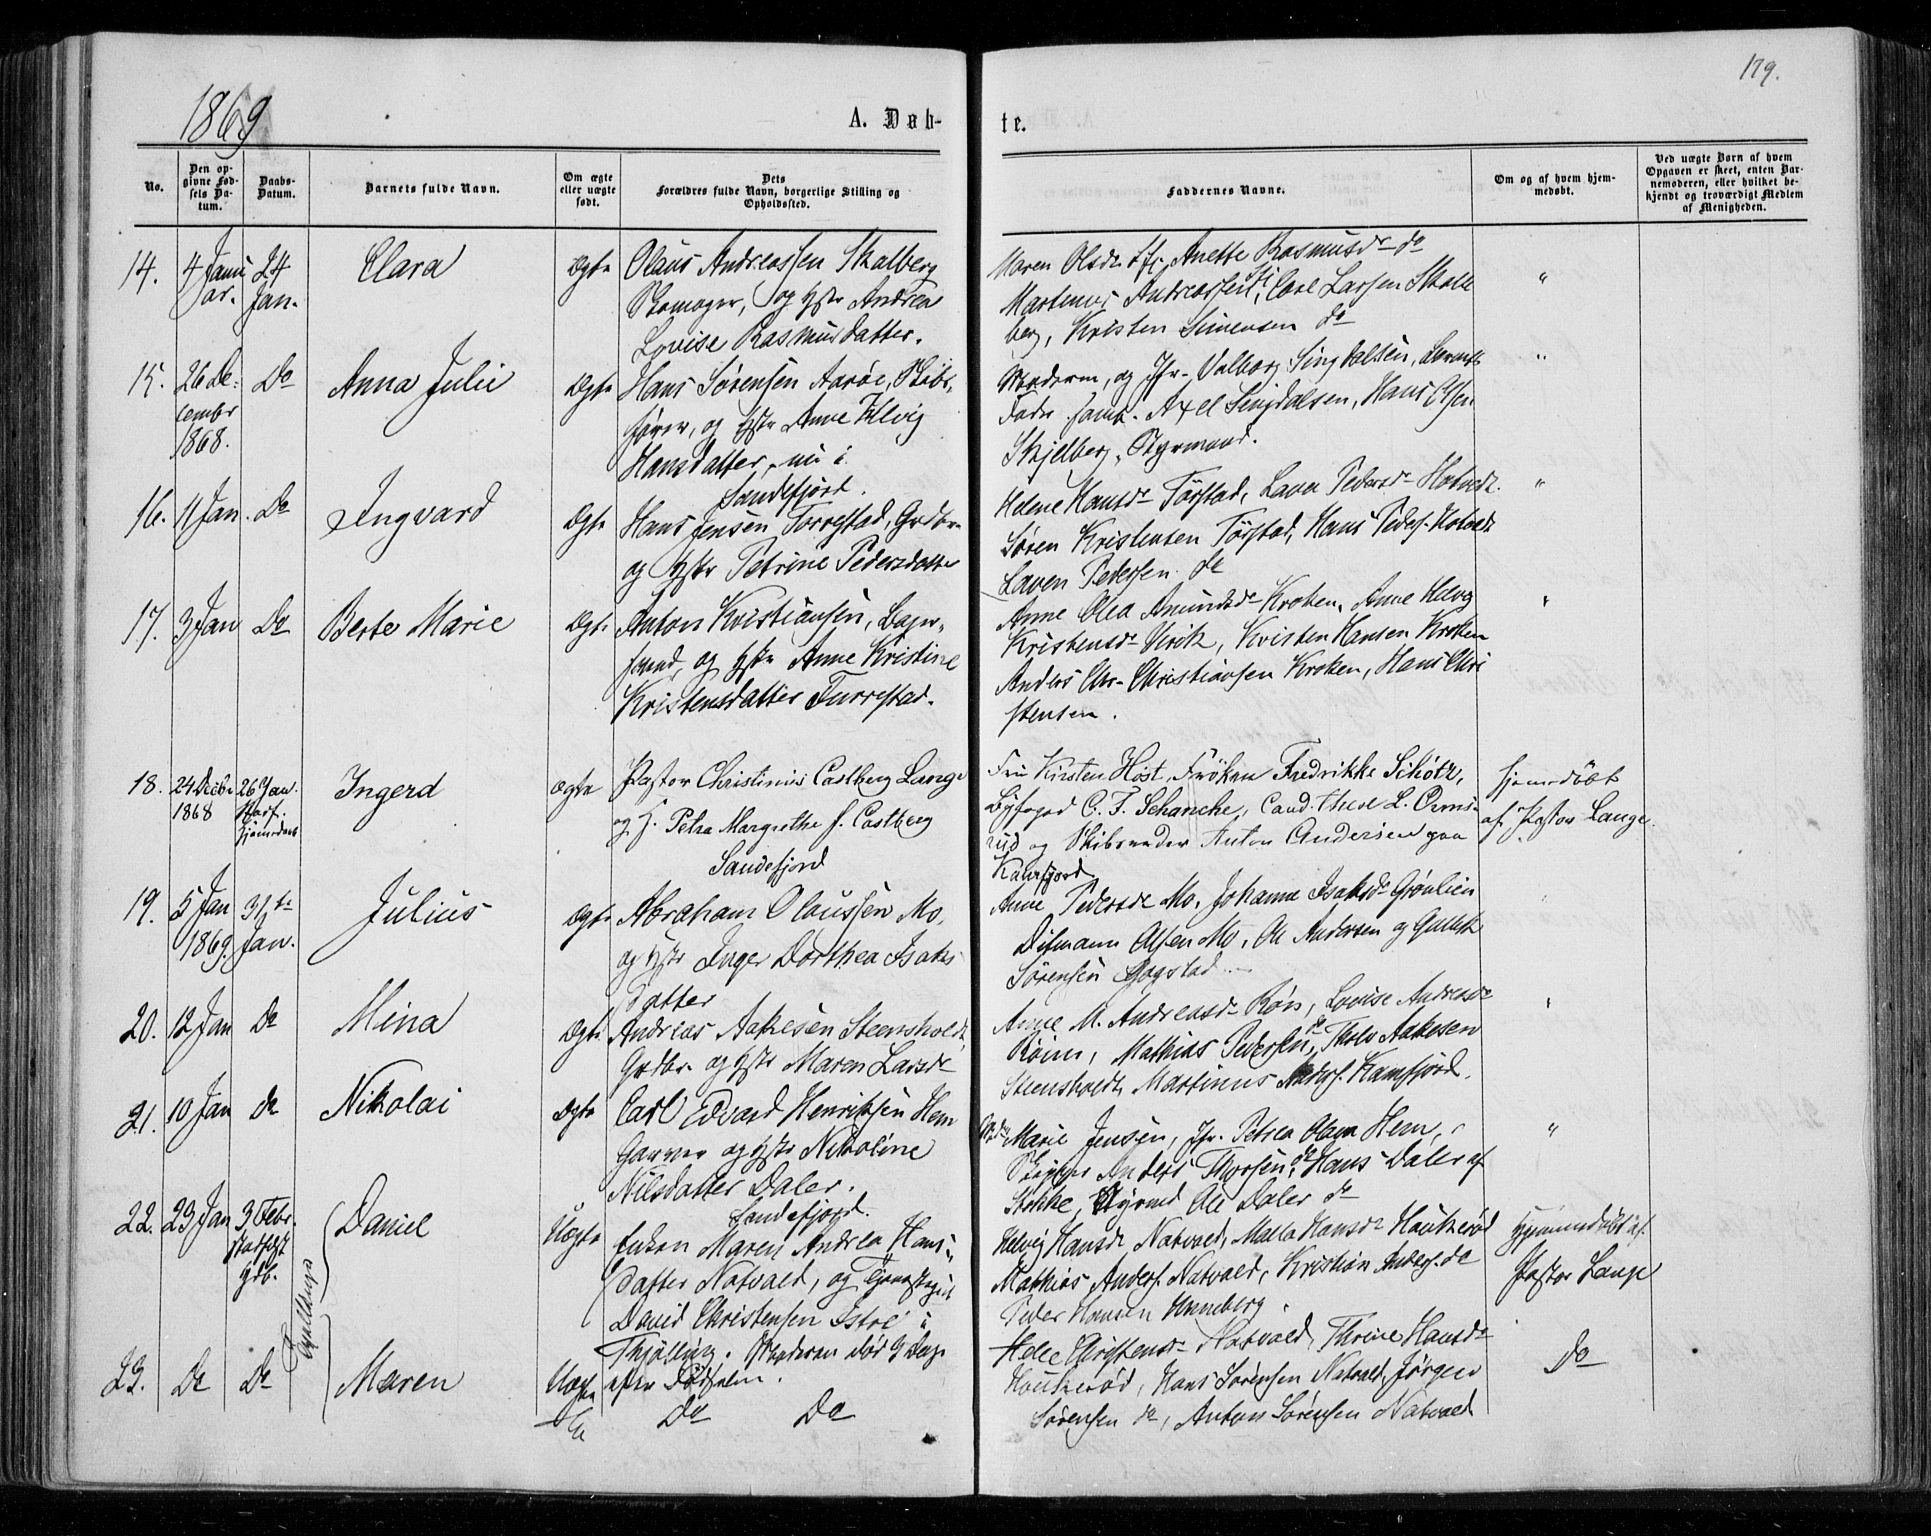 179.
1869
A. Døb-
te.
No.
Den op-
givne Fød-
sels Da-
tum.
Daabs-
Datum.
Barnets fulde Navn.
Om ægte
eller uægte
født.
Dets
Forældres fulde Navn, borgerlige Stilling og
Opholdssted.
Faddernes Navne.
Om og af hvem hjem-
medøbt.
Ved uægte Børn af hvem
Opgaven er skeet, enten Bar-
nemoderen, eller hvilket be-
kjendt og troværdigt Medlem
af Menigheden.
14.
4 Janu
ar.
24
Jan.
Clara
Ægte
Olaus Andreassen Skalberg
Skomager, og Hstr Andrea
Lovise Rasmusdatter.
Maren Olsdr Anette Rasmusdr do
Martinus Andreassen Carl Larsen Skall
berg, Kristen Simensen do
"
15.
26 De-
cember
1868.
Do
Anna Julie
Ægte
Hans Sørensen Aarøe, Skibs-
fører, og Hstr Anne Helvig
Hansdatter, nu i
Sandefjord.
Moderen, og Jfr. Valborg Singdalsen,
Fader samt. Axel Singdalsen, Hans Olsen
Skjelberg, Styrmand.
"
16.
11 Jan.
Do
Ingvard
Ægte
Hans Jensen Torrestad, Grdbr
og Hstr Petrine Pedersdatter
Helene Hansdr Torstad, Lava Pedersdr Hotvedt.
Søren Kristensen Torstad, Hans Peders. Hotvedt
Laven Pedersen do
"
17.
3 Jan
Do
Berte Marie
Ægte
Anton Kristiansen,
og Hstr Anne Kristine
Kristensdatter Furrestad.
Anne Olea Amundsdr Kroken, Anne Helvig
Kristensdr Virik, Kristen Hansen Kroken
Anders Chr. Christiansen Kroken, Hans Chri
stensen.
"
18.
24 Decbr
1868
26 Jan.
Ingerd
Ægte
Pastor Christinius Castberg Lange
og H. Petra Margrethe f. Castberg
Sandefjord
Fru Kirsten Høst, Frøken Fredrikke Schøtz,
Byfoged C. F. Schanche, Cand. theol L. Orms-
rud og Skibsreder Anton Andersen paa
Kamfjord
hjemmedøbt
af Pastor Lange.
19.
5 Jan
1869.
31te
Jan.
Julius
Ægte
Abraham Olaussen Mo,
og Hstr Inger Dorthea Isaks
datter
Anne Pedersdr Mo, Johanne Isaksdr Grønlien
Disman Olsen Mo, Ole Andersen og Gullik
Sørensen Gogstad
20.
12 Jan
Do
Mina
Ægte
Andreas Aakesen Steensholdt
Grdbr. og Hstr Maren Larsdr
Anne M. Andreasdr Røn, Lovise Andreasdr
Røien, Mathias Pedersen do, Tholv Aakesen
Steensholdt, Martinus Anders. Kamfjord.
"
21.
10 Jan
do
Nikolai
Ægte
Carl Edvard Henriksen Hem
Garver og Hstr Nikoline
Nilsdatter Daler.
Sandefjord.
Marie Jensen, Jfr. Petrea Olava Hem,
Skipper Anders Thorsen, do Hans Daler af
Stokke, Styrmd Ole Daler do
"
22.
23 Jan
3 Febr.
stadfæst
hjdb.
Tvillinger
Daniel
Uægte
Enken Maren Andrea Hans-
datter Natvald, og Tjenestegut
David Christensen Istre i
Thjølling. Moderen død 9 Dage
efter Fødselen.
Helvig Hansdr Natvald, Malla Hansdr Haukerød
Mathias Anders. Natvald, Kristian Anders. do
Peder Hansen Unneberg.
Hjemmedøbt af
Pastor Lange
23.
Do
Do
Maren
Uægte
Do Do
Helle Christensdr Natvald, Thrine Hansdr
Haukerød, Hans Sørensen Natvald, Jørgen
Sørensen do, Anton Sørensen Natvald
Do